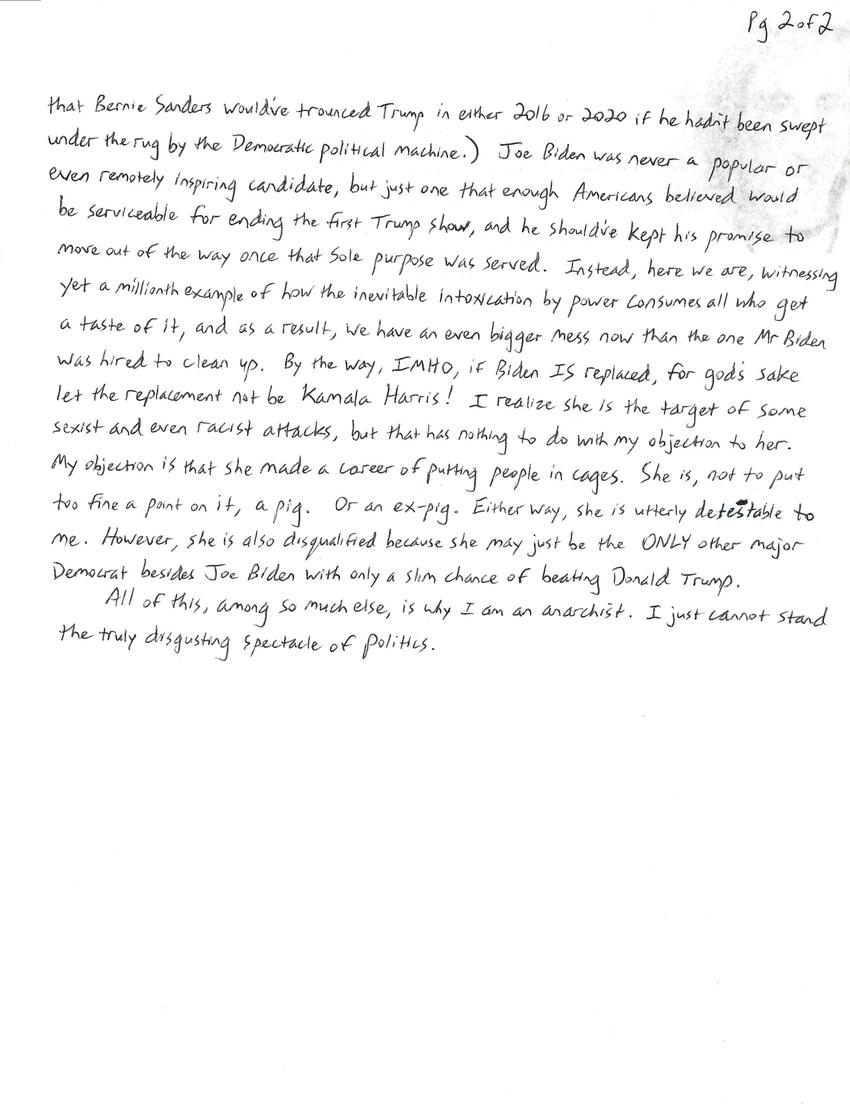 Pg 2 of 2
that Bernie Sanders would've trounced Trump in either 2016 or 2020 if he hadn't been swept
under the rug by the Democratic political machine.) Joe Biden was never a popular or
even remotely inspiring candidate, but just one that enough Americans believed would
be serviceable for ending the first Trump show, and he should've kept his promise to
move out of the way once that sole purpose was served. Instead, here we are, witnessing
yet a millionth example of how the inevitable intoxication by power consumes all who get
a taste of it, and as a result, we have an even bigger mess now than the one Mr Biden
was hired to clean up. By the way, IMHO, if Biden IS replaced, for god's sake
let the replacement not be Kamala Harris! I realize she is the target of some
sexist and even racist attacks, but that has nothing to do with my objection to her.
My objection is that she made a career of putting people in cages. She is, not to put
too fine a point on it, a pig. Or an ex-pig. Either way, she is utterly detestable to
me. However, she is also disqualified because she may just be the ONLY other major
Democrat besides Joe Biden with only a slim chance of beating Donald Trump.
All of this, among so much else, is why I am an anarchist. I just cannot stand
the truly disgusting spectacle of politics.